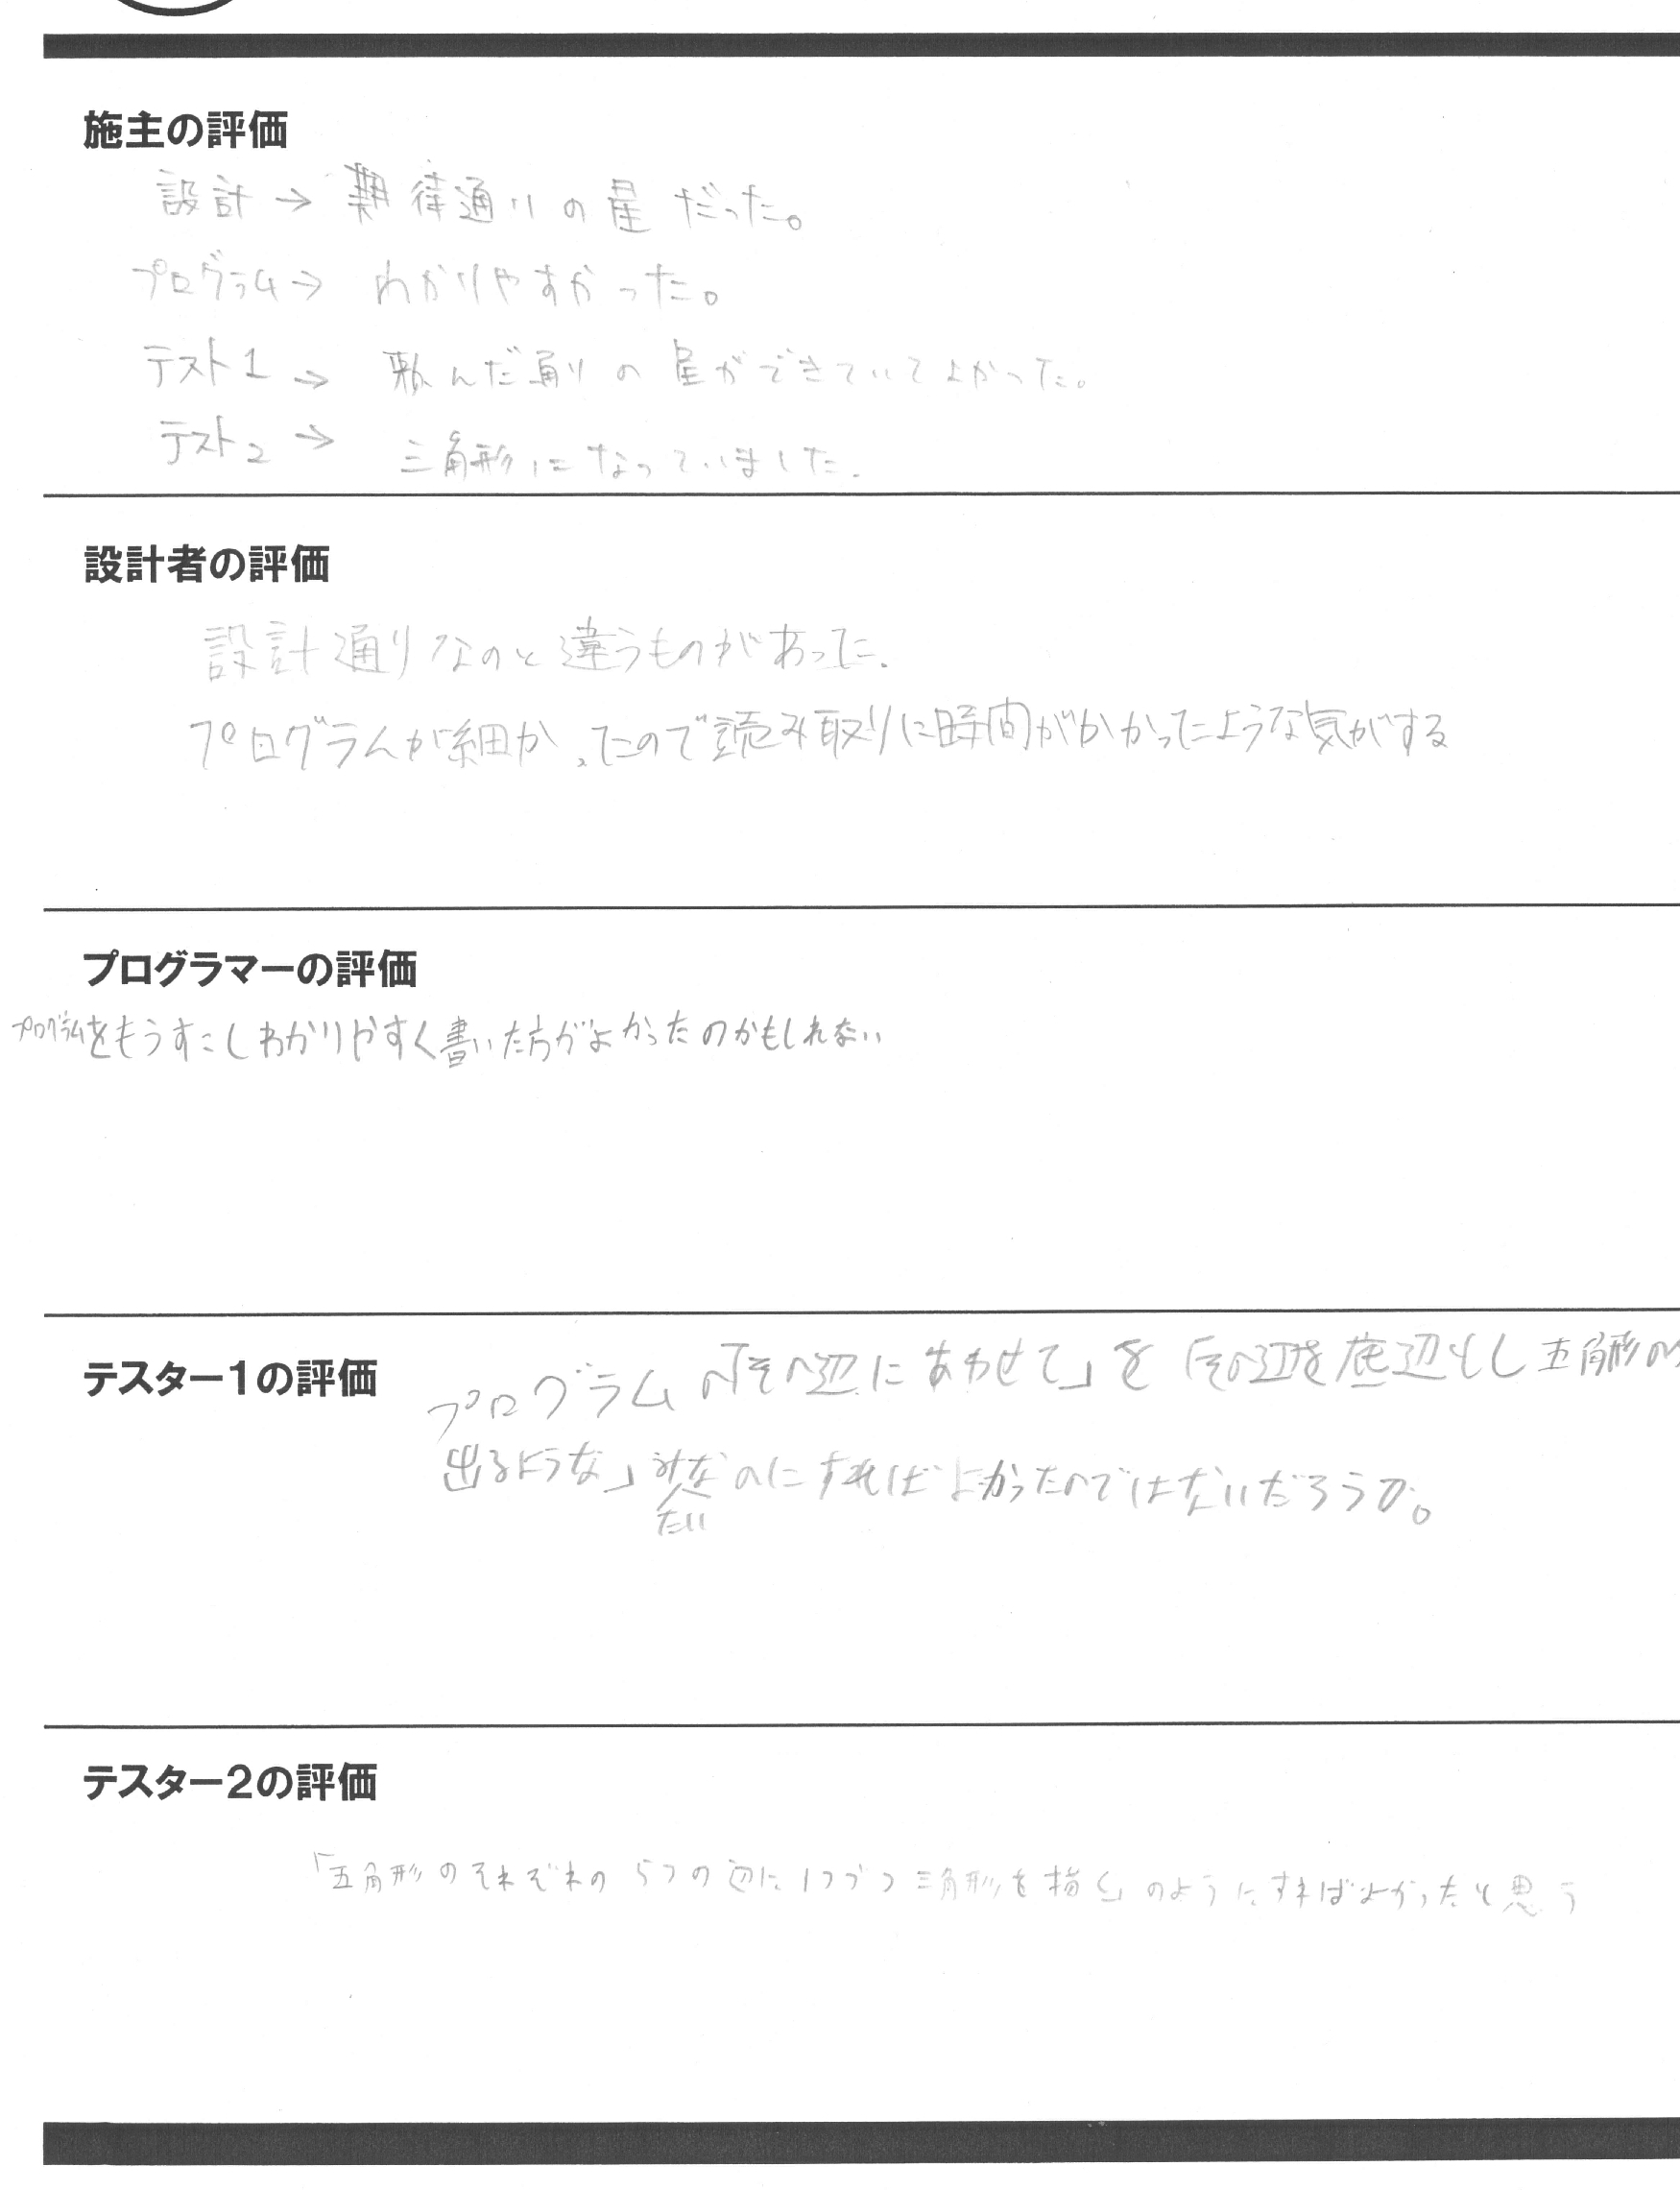 施主の評価
設計→期待通りの星だった。
プログラム→わかりやすかった。
テスト1→頼んだ通りの星ができていてよかった。
テスト2→三角形になっていました.
設計者の評価
設計通りなのと違うものがあった.
プログラムが細かったので読み取りに時間がかかったような気がする
プログラマーの評価
プログラムをもうすこしわかりやすく書いた方がよかったのかもしれない
テスター1の評価
プログラムの「その辺にあわせて」を「その辺を底辺とし五角形の
出るような」みたいなのにすればよかったのではないだろうか。
テスター2の評価
「五角形のそれぞれの5つの辺に1つづつ三角形を描く」のようにすればよかったと思う